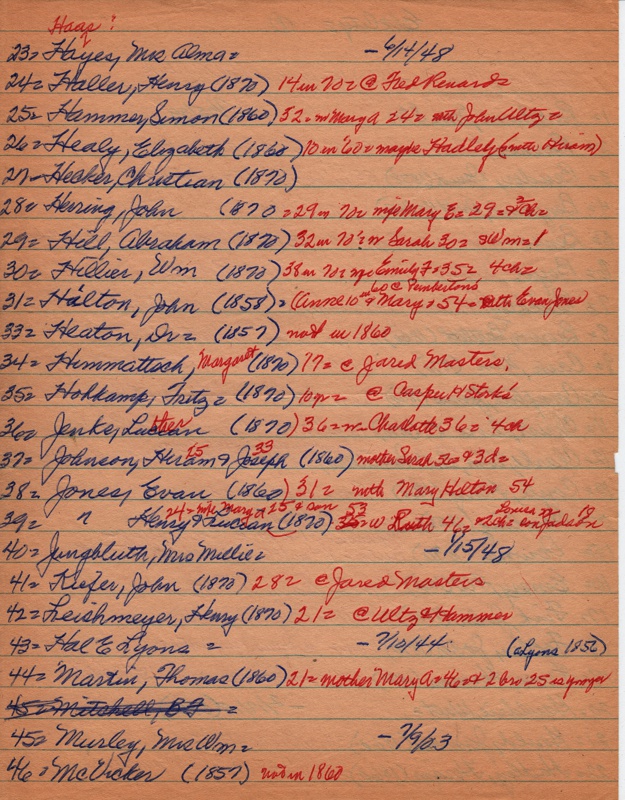 Haas?
23= Hayes, Mrs Alma = - 6/14/48
24= Haller, Henry (1870) 14 in 70 = @ Fred Renards
25= Hammer, Simon (1860) 32 = w Mary A 24 = with John Ultz =
26= Healy, Elizabeth (1860) 10 in '60 = maybe Hadley (with Hiram)
27= Hecker, Christian (1870)
28= Herring, John (1870 = 29 in 70 = wife Mary E = 29 = ch =
29= Hill, Abraham (1870) 32 in 70 = w Sarah 30 = Wm = 1
30= Hillier, Wm (1870) 38 in 70 = Emily F = 35 = 4 ch =
60 @ Pembertons
31= Hilton, John (1858) = Anne 10 & Mary = 54 = with Evan Jones
33= Heaton, Dr = (1857) not in 1860
34= Himmattosh, Margaret (1870) 17 = @ Jared Masters.
35= Hohkamp, Fritz = (1870) 10 yr = @ Casper H Stork's
36= Jenke, Luther (1870) 36 = w = Charlotte 36 = 4 ch
37= Johnson, Hiram 15 & Joseph 33 (1860) mother Sarah 56 = & 3 d =
38= Jones, Evan (1860) 31 = with Mary Hilton 54
24 = Mary = 25 & son 53 Louis
39= " Henry & Lucian (1870) = w Ruth 46 = Judson 19
40= Jungbluth, Mrs Millie = - 1/15/48
41= Kiefer, John (1870) 28 = @ Jared Masters
42= Leishmeyer, Henry (1870) 21 = @ Ultz & Hammer
43= Hal E Lyons = - 7/10/44 (Lyons 1856)
44= Martin, Thomas (1860) 21 = mother Mary A = 46 = & 2 bro 25 is younger
45= Mitchell, B F =
45= Mursley, Mrs Wm = - 7/9/63
46= McVicker (1857) not in 1860